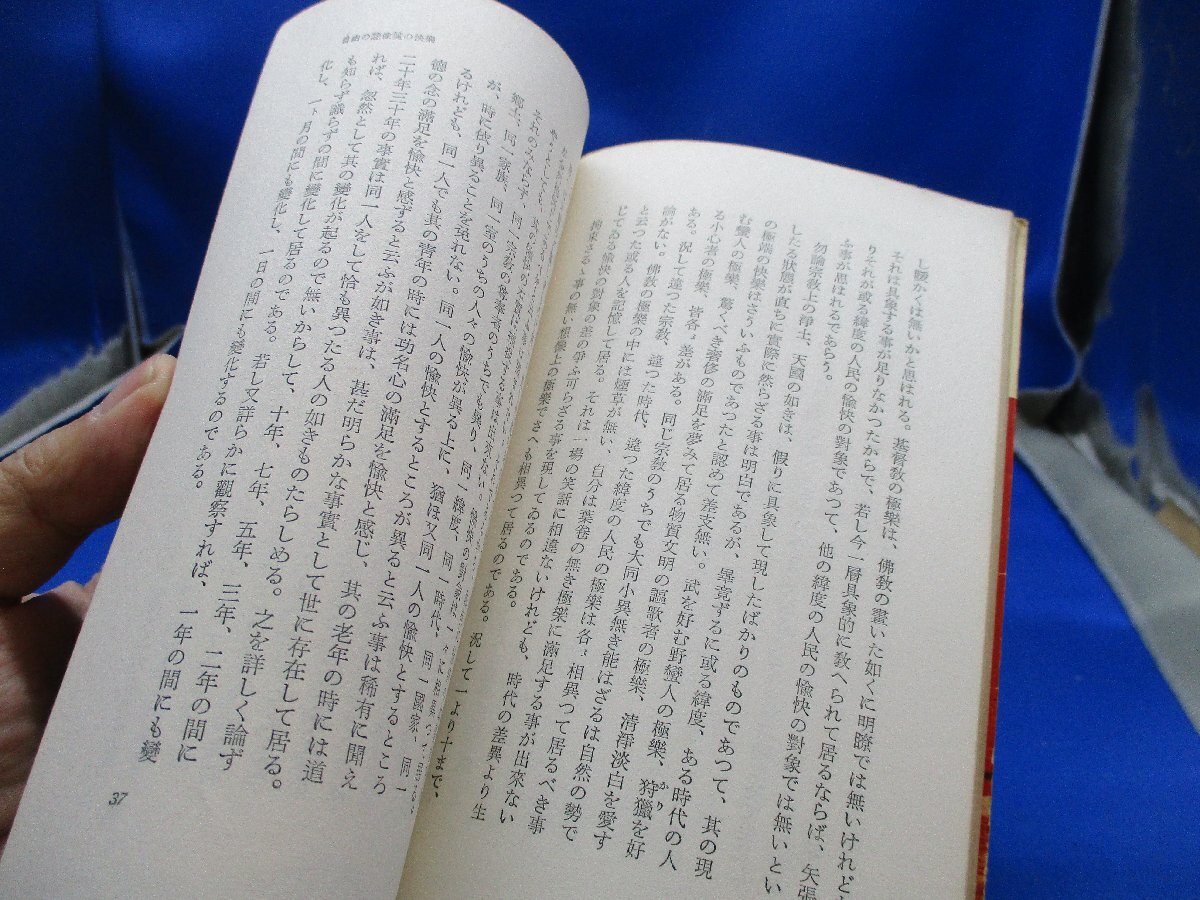 し暖かくは無いかと思はれる。基督教の極樂は、佛教の畫いた如くに明瞭では無いけれど
それは具象する事が足りなかつたからで、若し今一層具象的に敎へられて居るならば、矢張
りそれが或る緯度の人民の愉快の對象であつて、他の緯度の人民の愉快の對象では無いとい
ふ事が思はれるであらう。
勿論宗教上の淨土、天國の如きは、假りに具象して現したばかりのものであつて、其の現
したる狀態が直ちに實際に然らざる事は明白であるが、畢竟ずるに或る緯度、ある時代の人
の極端の快樂はさういふものであつたと認めて差支無い。武を好む野蠻人の極樂、狩獵を好
む蠻人の極樂、驚くべき奢侈の滿足を夢みて居る物質文明の謳歌者の極樂、清淨淡白を愛す
る小心者の極樂、皆各〻差がある。同じ宗教のうちでも大同小異無き能はざるは自然の勢で
ある。況して違つた宗教、違つた時代、違つた緯度の人民の極樂は各〻相異つて居るべき事
論がない。佛教の極樂の中には煙草が無い、自分は葉卷の無き極樂に滿足する事が出來ない
と云つた或る人を記憶して居る。それは一場の笑話に相違ないけれども、時代の差異より生
じてゐる愉快の對象の差の爭ふ可らざる事を現してゐるのである。況して一より十まで、
拘束さるゝ事の無い想像上の極樂でさへも相異つて居るのである。
それのみならず、
鄕土、同一家族、同一室のうちの人々の愉快が異る上に、猶ほ又同一人の愉快とするところ
が、時に依り異ることを免れない。同一人の愉快とするところが異ると云ふ事は稀有に聞え
るけれども、同一人でも其の青年の時には功名心の滿足を愉快と感じ、其の老年の時には道
德の念の滿足を愉快と感ずると云ふが如き事は、甚だ明らかな事實として世に存在して居る。
二十年三十年の事實は同一人をして恰も異つたる人の如きものたらしめる。之を詳しく論ず
れば、忽然として其の變化が起るので無いからして、十年、七年、五年、三年、二年の間に
も知らず識らずの間に變化して居るのである。若し又詳らかに觀察すれば、一年の間にも變
化し、一ト月の間にも變化し、一日の間にも變化するのである。
37